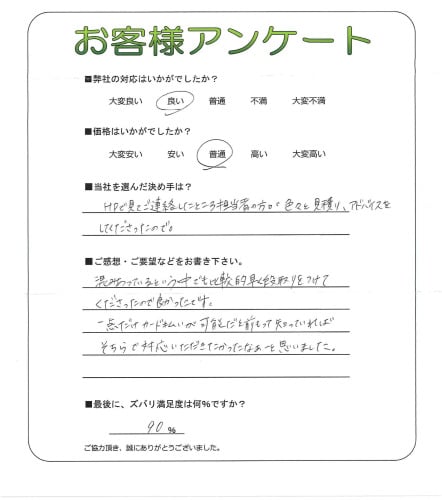 お客様アンケート
■弊社の対応はいかがでしたか？
大変良い 良い 普通 不満 大変不満
■価格はいかがでしたか？
大変安い 安い 普通 高い 大変高い
■当社を選んだ決め手は？
HPで見てご連絡したところ担当者の方が色々と見積り、アドバイスを
してくださったので。
■ご感想・ご要望などをお書き下さい。
混みあっているという中でも比較的早く段取りをつけて
くださったので良かったです。
一点だけカード払いが可能だと前もって知っていれば
そちらで対応いただきたかったなぁーと思いました。
■最後に、ズバリ満足度は何％ですか？
90 ％
ご協力頂き、誠にありがとうございました。